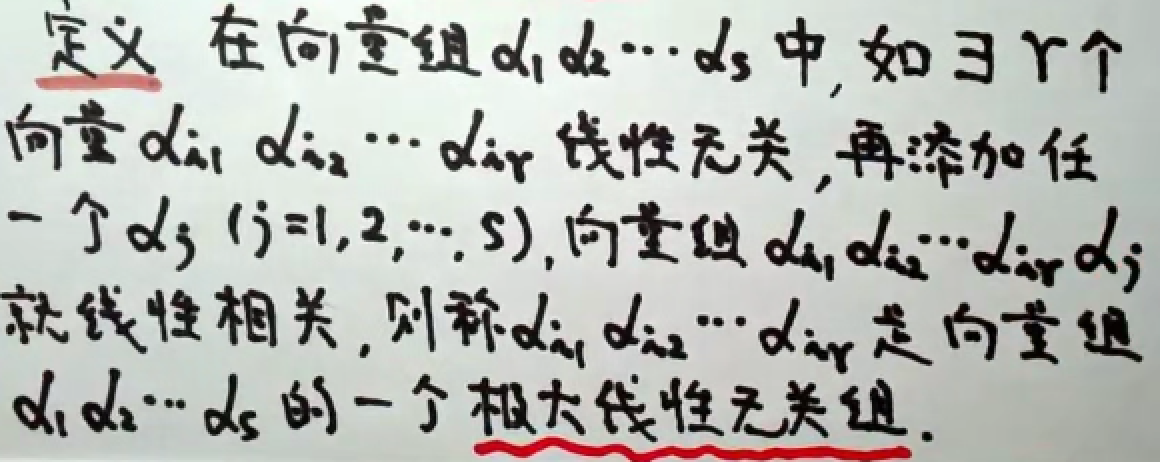 定义 在向量组α₁α₂⋯αₛ中,如∃r个
向量αᵢ₁ αᵢ₂ ⋯ αᵢᵣ 线性无关,再添加任
一个αⱼ (j=1,2,⋯,s),向量组αᵢ₁αᵢ₂⋯αᵢᵣ αⱼ
就线性相关,则称αᵢ₁ αᵢ₂⋯αᵢᵣ是向量组
α₁α₂⋯αₛ的一个极大线性无关组.